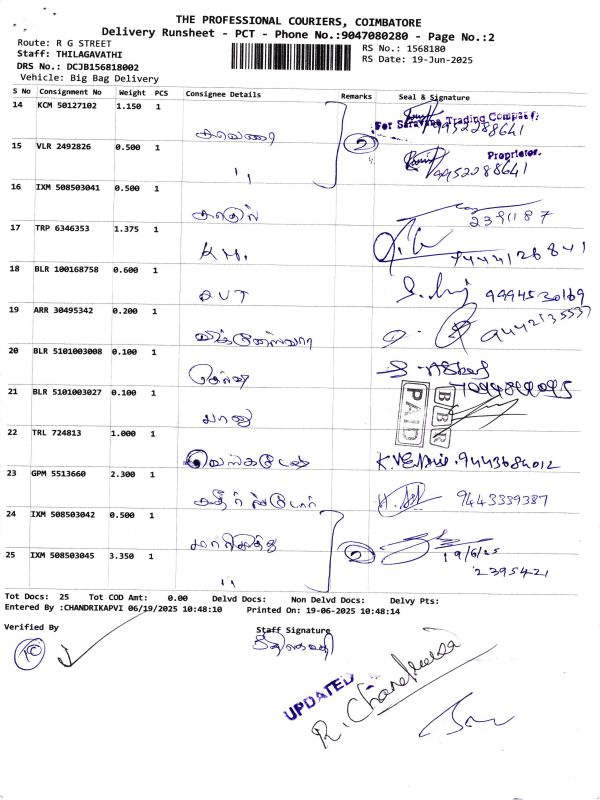 THE PROFESSIONAL COURIERS, COIMBATORE
Delivery Runsheet - PCT - Phone No.:9047080280 - Page No.:2
Route: R G STREET
RS No.: 1568180
Staff: THILAGAVATHI
RS Date: 19-Jun-2025
DRS No.: DCJB156818002
Vehicle: Big Bag Delivery
S No Consignment No Weight PCS Consignee Details Remarks Seal & Signature
14 KCM 50127102 1.150 1
2 For Saravana Trading Company, 9952288641
15 VLR 2492826 0.500 1
" Proprietor. 9952088641
16 IXM 508503041 0.500 1
2391187
17 TRP 6346353 1.375 1
K.M. 9444126841
18 BLR 100168758 0.600 1
DVT 9994530169
19 ARR 30495342 0.200 1
விக்னேஸ்வரா 9442135537
20 BLR 5101003008 0.100 1
21 BLR 5101003027 0.100 1
பானு BBR PAID
22 TRL 724813 1.000 1
வெங்கடேஷ் 9443684012
23 GPM 5513660 2.300 1
கதிர் ஸ்டோர் 9443339387
24 IXM 508503042 0.500 1
2 19/6/25
25 IXM 508503045 3.350 1
" 2395421
Tot Docs: 25 Tot COD Amt: 0.00 Delvd Docs: Non Delvd Docs: Delvy Pts:
Entered By :CHANDRIKAPVI 06/19/2025 10:48:10 Printed On: 19-06-2025 10:48:14
Verified By Staff Signature
UPDATED
R. Chandrika